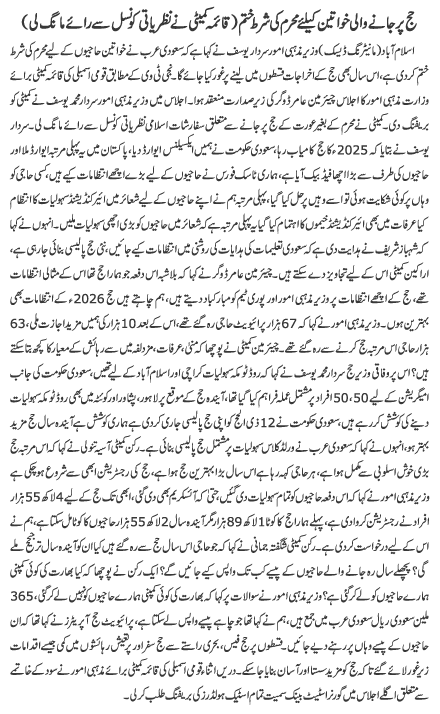 حج پر جانے والی خواتین کیلئے محرم کی شرط ختم (قائمہ کمیٹی نے نظریاتی کونسل سے رائے مانگ لی)
اسلام آباد (مانیٹرنگ ڈیسک) وزیر مذہبی امور سردار یوسف نے کہا ہے کہ سعودی عرب نے خواتین حاجیوں کے لیے محرم کی شرط
ختم کر دی ہے، اس سال بھی حج کے اخراجات قسطوں میں لینے پر غور کیا جائے گا۔ نجی ٹی وی کے مطابق قومی اسمبلی کی قائمہ کمیٹی برائے
وزارت مذہبی امور کا اجلاس چیئرمین عامر ڈوگر کی زیر صدارت منعقد ہوا۔ اجلاس میں وزیر مذہبی امور سردار محمد یوسف نے کمیٹی کو
بریفنگ دی۔ کمیٹی نے محرم کے بغیر عورت کے حج پر جانے سے متعلق سفارشات اسلامی نظریاتی کونسل سے رائے مانگ لی۔ سردار
یوسف نے بتایا کہ 2025ء کا حج کامیاب رہا، سعودی حکومت نے ہمیں ایکسیلنس ایوارڈ دیا، پاکستان میں یہ پہلی مرتبہ ایوارڈ ملا اور
حاجیوں کی طرف سے بڑا اچھا فیڈ بیک آیا ہے، ہماری ٹاسک فورس نے حاجیوں کے لیے بڑے اچھے انتظامات کیے ہیں، کسی حاجی کو
وہاں پر کوئی شکایت ہوئی تو اسے وہیں پر حل کیا گیا، پہلی مرتبہ ہم نے اپنے حاجیوں کے لیے شعائر میں ائیر کنڈیشنڈ سہولیات کا انتظام
کیا عرفات میں بھی ائیر کنڈیشنڈ خیموں کا اہتمام کیا گیا یہ پہلی مرتبہ ہے کہ شعائر میں حاجیوں کو بڑی اچھی سہولیات ملیں۔ انہوں نے کہا
کہ شہباز شریف نے ہدایت دی ہے کہ سعودی تعلیمات کی ہدایات کی روشنی میں انتظامات کیے جائیں، نئی حج پالیسی بنائی جا رہی ہے،
اراکین کمیٹی اس کے لیے تجاویز دے سکتے ہیں۔ چیئرمین عامر ڈوگر نے کہا کہ بلاشبہ اس دفعہ جو ہمارا حج تھا اس کے مثالی انتظامات
تھے، حج کے اچھے انتظامات پر وزیر مذہبی امور اور پوری ٹیم کو مبارکباد دیتے ہیں، ہم چاہتے ہیں حج 2026ء کے انتظامات بھی
بہترین ہوں۔ وزیر مذہبی امور نے کہا کہ 67 ہزار پرائیویٹ حاجی رہ گئے تھے، اس کے بعد 10 ہزار کی ہمیں مزید اجازت ملی، 63
ہزار حاجی اس مرتبہ حج کرنے سے رہ گئے تھے۔ چیئرمین کمیٹی نے پوچھا کہ منیٰ، عرفات، مزدلفہ میں سے رہائش کے معیار کا کچھ بتا سکتے
ہیں؟ اس پر وفاقی وزیر حج سردار محمد یوسف نے کہا کہ روڈ ٹو مکہ سہولیات کراچی اور اسلام آباد کے لیے تھیں، سعودی حکومت کی جانب
امیگریشن کے لیے 50، 50 افراد پر مشتمل عملہ فراہم کیا گیا تھا، آئندہ حج کے موقع پر لاہور، پشاور اور کوئٹہ میں بھی روڈ ٹو مکہ سہولیات
دینے کی کوشش کر رہے ہیں، سعودی حکومت نے 12 ذی الحج کو اپنی حج پالیسی جاری کر دی ہے ہماری کوشش ہے آئندہ سال حج مزید
بہتر ہو، انہوں نے کہا کہ سعودی عرب نے ورلڈ کلاس سہولیات پر مشتمل حج پالیسی بنائی ہے۔ رکن کمیٹی آسیہ تنولی نے کہا کہ اس مرتبہ حج
بڑی خوش اسلوبی سے مکمل ہوا ہے، ہر حاجی کہہ رہا ہے اس سال بڑا بہترین حج ہوا ہے، حج کی رجسٹریشن ابھی سے شروع ہو چکی ہے
وزیر مذہبی امور نے کہا کہ اس دفعہ حاجیوں کو تمام سہولیات دی گئیں حتیٰ کہ آئسکریم بھی دی گئی، ابھی تک حج کے لیے 4 لاکھ 55 ہزار
افراد نے رجسٹریشن کروا دی ہے، پہلے ہمارا حج کا کوٹا 1 لاکھ 89 ہزار مگر آئندہ سال 2 لاکھ 55 ہزار حاجیوں کا کوٹا مل سکتا ہے، ہم نے
اس کے لیے درخواست کر دی ہے۔ رکن کمیٹی شگفتہ جمانی نے کہا کہ جو حاجی اس سال حج سے رہ گئے ہیں کیا ان کو آئندہ سال ترجیح ملے
گی؟ پچھلے سال رہ جانے والے حاجیوں کے پیسے کب تک واپس کیے جائیں گے؟ ایک رکن نے پوچھا کہ کیا بھارت کی کوئی کمپنی ہمارے
حاجیوں کو لے کر گئی ہے؟ وزیر مذہبی امور نے سوالات پر کہا کہ بھارت کی کوئی کمپنی ہمارے حاجیوں کو نہیں لے کر گئی، 365
ملین سعودی ریال سعودی عرب میں جمع ہیں، ہم نے کہا ہے کہ جو چاہتا ہے پیسے واپس لے سکتا ہے، پرائیویٹ حج آپریٹرز نے کہا تھا کہ ان
حاجیوں کے پیسے وہاں پر رہنے دیے جائیں۔ قسطوں پر حج فیس، بحری راستے سے حج سفر اور پرتعیش رہائشوں میں کمی جیسے اقدامات
زیر غور لائے گئے تا کہ حج کو مزید سستا اور آسان بنایا جا سکے۔ دریں اثنا، قومی اسمبلی کی قائمہ کمیٹی برائے مذہبی امور نے سود کے خاتمے
سے متعلق اگلے اجلاس میں گورنر اسٹیٹ بینک سمیت تمام اسٹیک ہولڈرز کی بریفنگ طلب کر لی۔